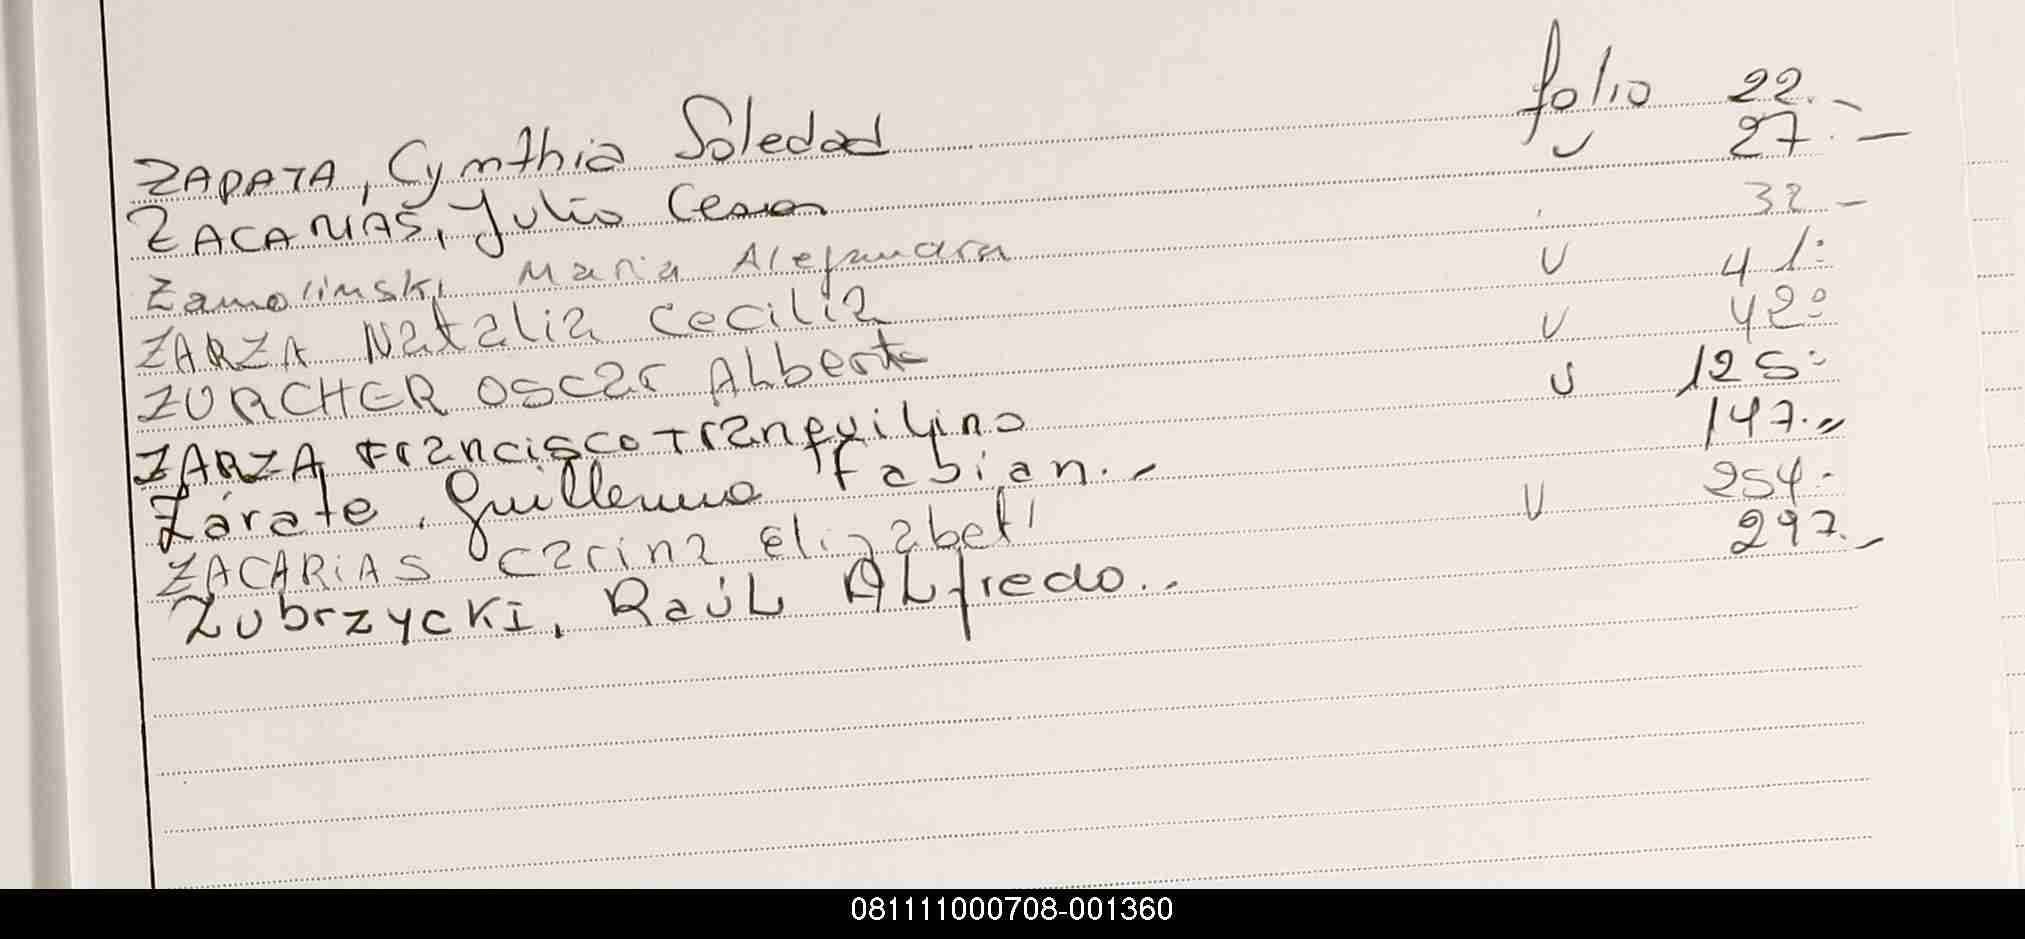 ZAPATA, Cynthia Soledad folio 22.-
ZACARIAS, Julio Cesar 27.-
Zamolinski Maria Alejandra 32-
ZARZA Natalia Cecilia 41:
ZURCHER OSCAR ALberto 42:
ZARZA Francisco Tranquilino 125:
Zárate, Guillermo Fabian.- 147.,,
ZACARiAS Carina Elizabet 254-
Zubrzycki, RaúL ALfredo.. 297.-
081111000708-001360